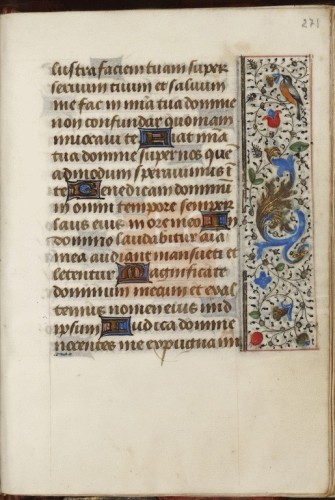 271
lustra faciem tuam super
seruum tuum et saluum
me fac in mīa tua domine
non confundar quoniam
inuocaui te Fiat mīa
tua domine super nos quē
admodum sperauimus ī
te Benedicam dominū
in omni tempore semper
laus eius in ore meo In
domino laudabitur aīa
mea audiant mansueti et
letentur Magnificate
dominum mecum et exal
temus nomen eius in id
ipsum Iudica domine
nocentes me expugna im